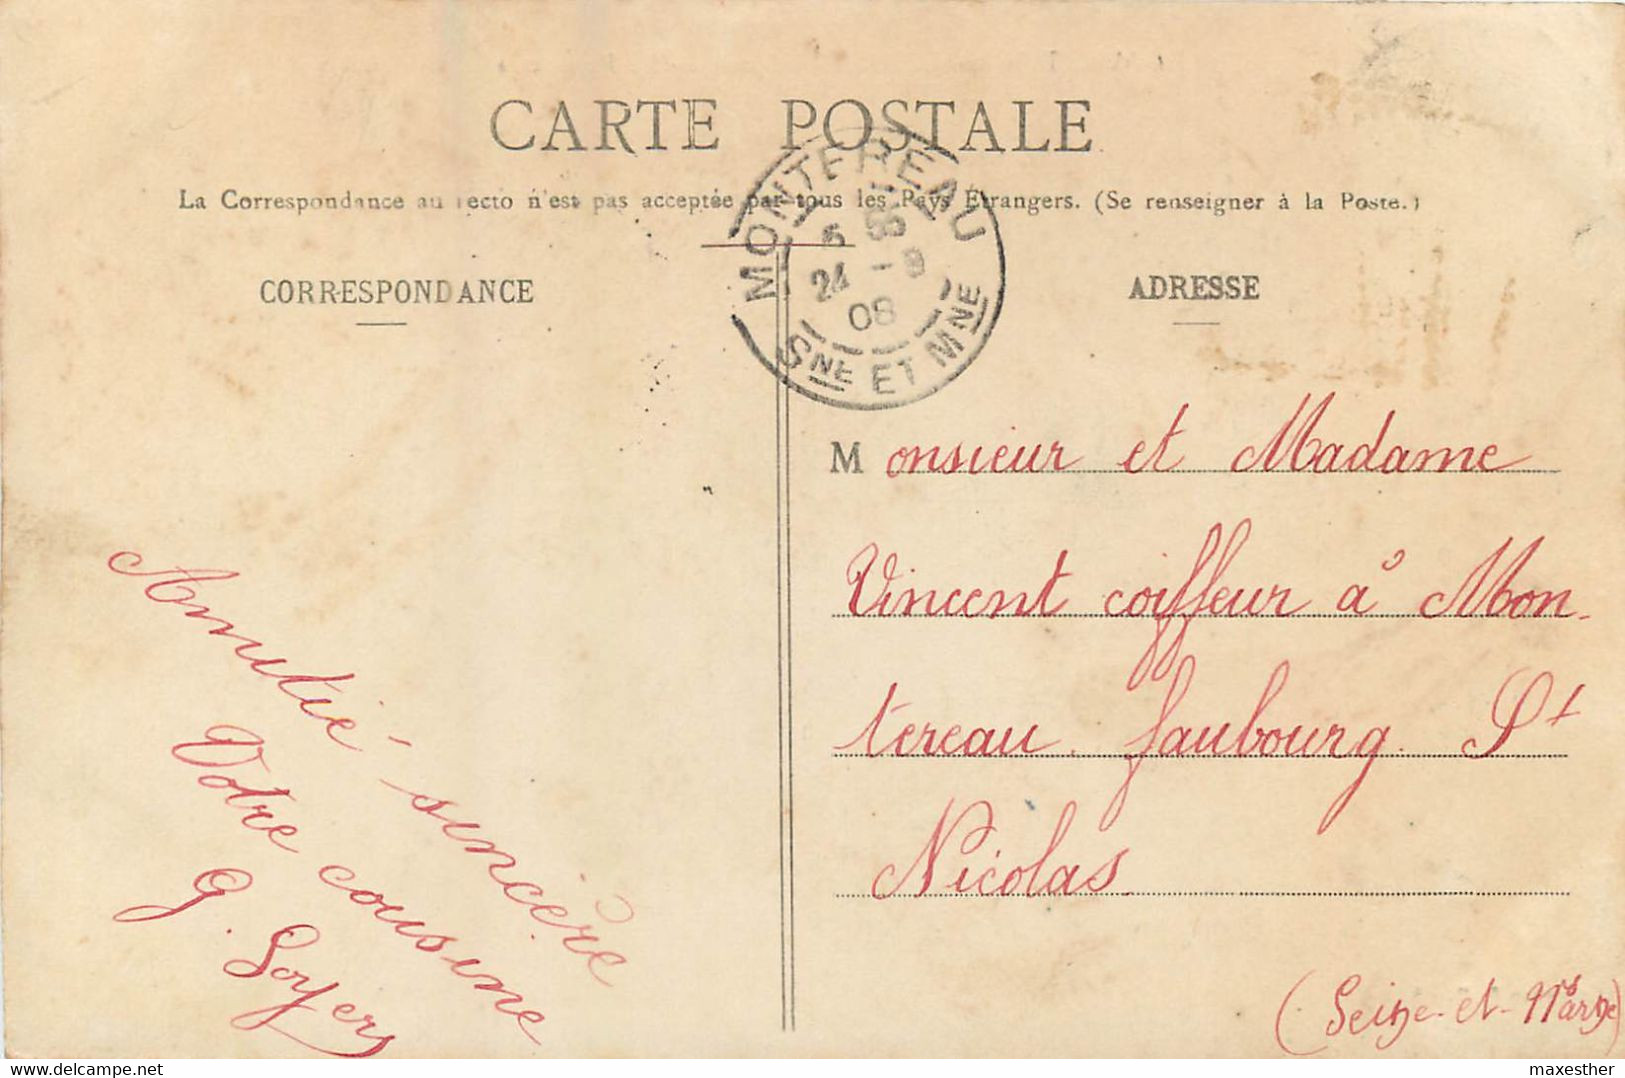 CARTE POSTALE
La Correspondance au recto n'est pas acceptée par tous les Pays Étrangers. (Se renseigner à la Poste.)
MONTEREAU
24 - 9
08
SNE ET MNE
CORRESPONDANCE
ADRESSE
Monsieur et Madame
Vincent coiffeur à Mon-
tereau. faubourg. St
Nicolas.
(Seine-et-Marne)
Amitié sincère
Votre cousine
G. Soyer
delcampe.net
maxesther